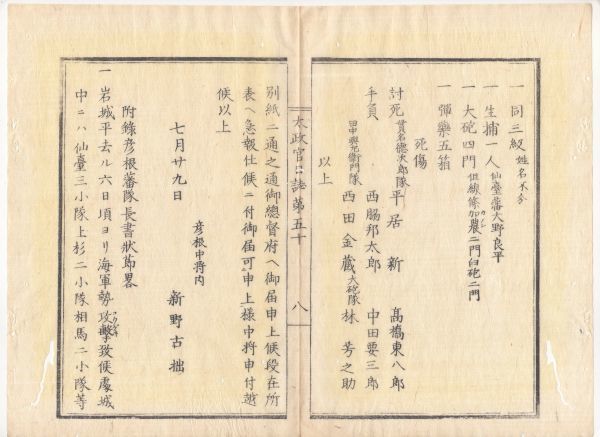 一同三級姓名不分
一生捕一人仙臺藩大野良平
一大砲四門但線條加農二門臼砲二門
カノン
一彈藥五箱
死傷
討死貫名德次郎隊平居新 髙橋東八郎
手負 西脇邦太郎 中田要三郎
田中與左衛門隊西田金藏大砲隊林芳之助
以上
太政官日誌第五十 八
別紙二通之通御總督府ヘ御届申上候段在所
表ヘ急報仕候ニ付御届可申上樣中將申付越
候以上
七月廿九日
彦根中將内
新野古拙
附錄彦根藩隊長書狀節畧
一岩城平去ル六日頃ヨリ海軍勢攻擊致候處城
中ニハ仙臺三小隊上杉二小隊相馬二小隊等